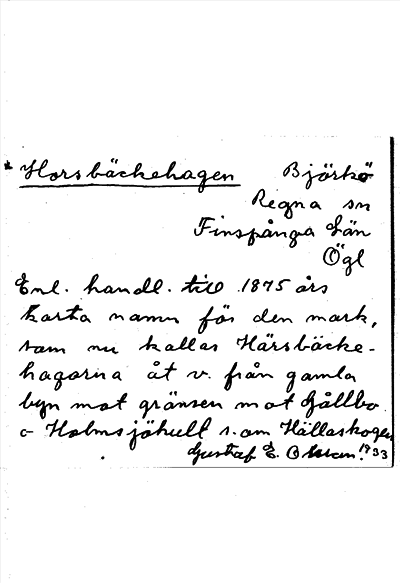 * Horsbäckehagen Björkö
Regna sn
Finspånga Län
Ögl
Enl. handl. till 1875 års
karta namn för den mark,
som nu kallas Härsbäcke-
hagarna åt v. från gamla
byn mot gränsen mot Gållbo
o Holmsjöhult s. om Hällaskogen
Gustaf E. Olsson. 1933